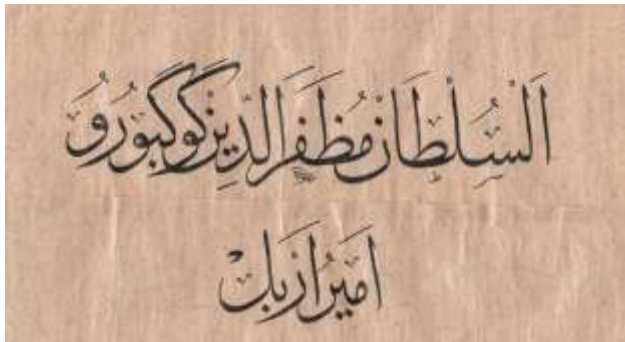 السلطان مظفرالدين گوگبورو
امير اربل